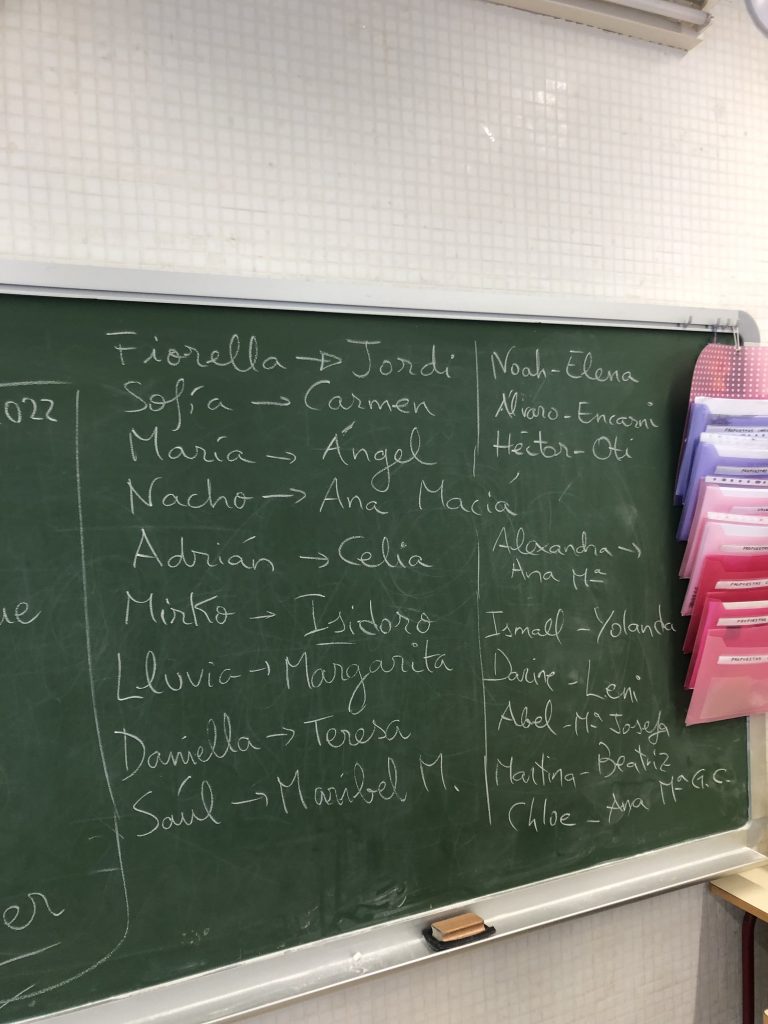 2022
ue
er
Fiorella → Jordi
Sofía → Carmen
María → Ángel
Nacho → Ana Maciá
Adrián → Celia
Mirko → Isidoro
Lluvia → Margarita
Daniella → Teresa
Saúl → Maribel M.
Noah - Elena
Álvaro - Encarni
Héctor - Oti
Alexandra →
Ana Mª
Ismael - Yolanda
Darine - Leni
Abel - Mª Josefa
Martina - Beatriz
Chloe - Ana Mª G.C.
PROPUESTAS
PROPUESTAS
PROPUESTAS